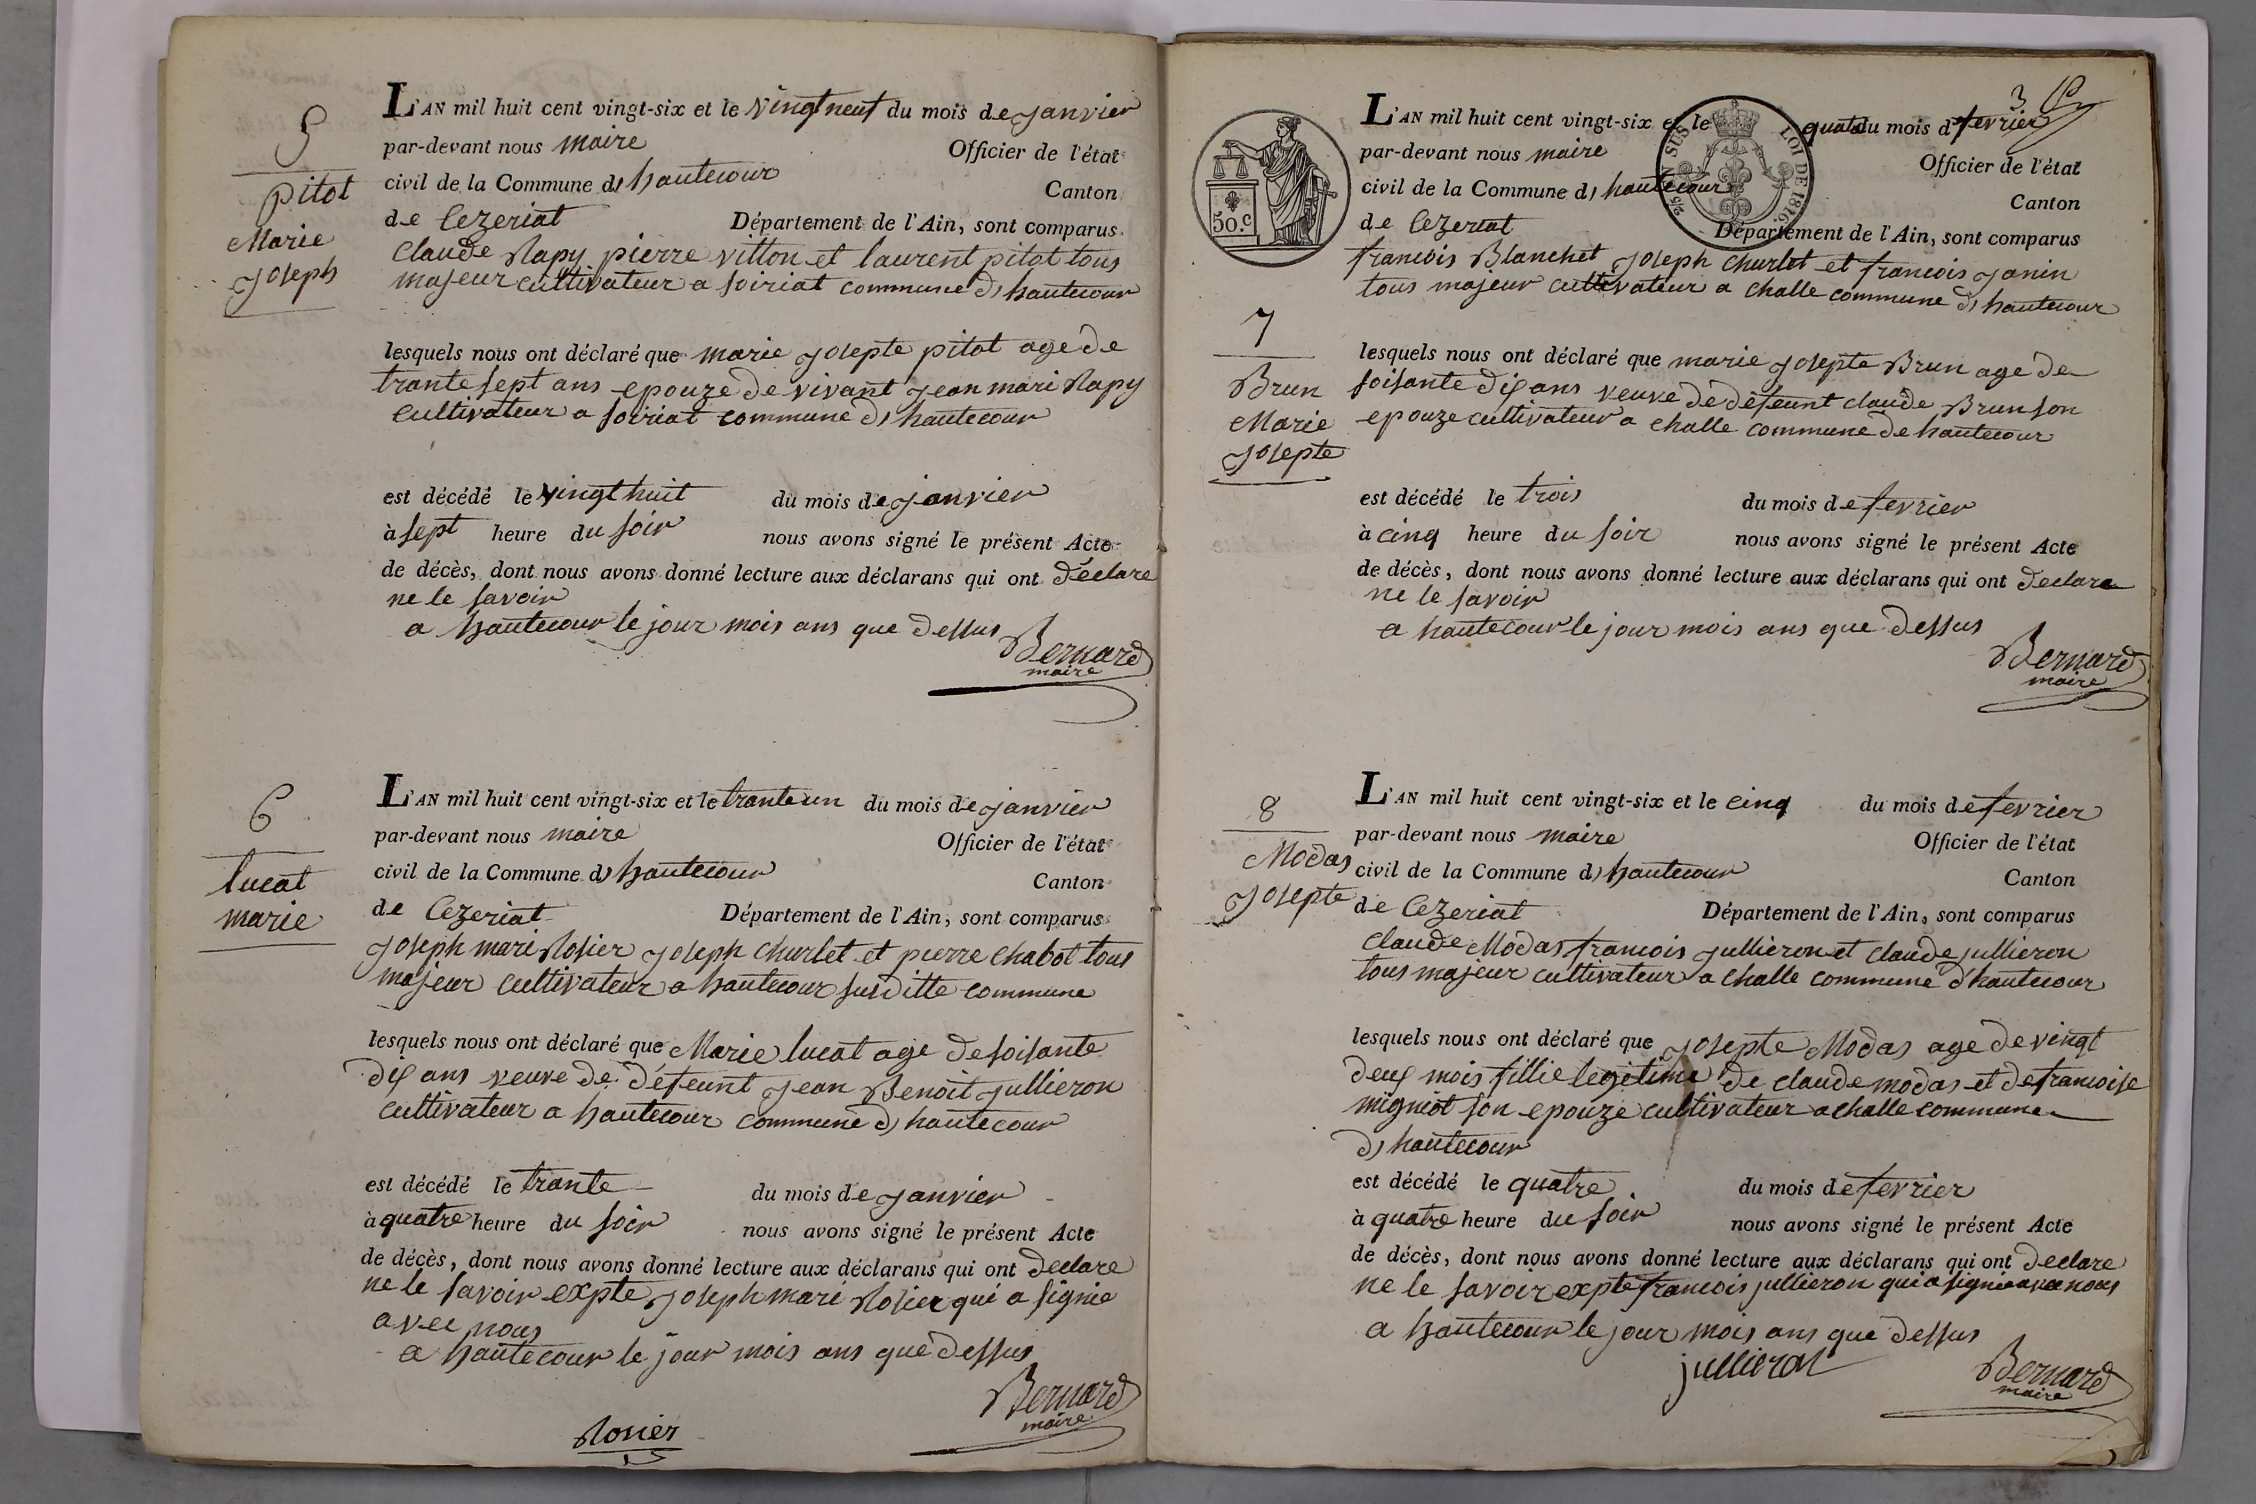 5
pitot
Marie
Joseph
L'AN mil huit cent vingt-six et le vingt neuf du mois de janvier
par-devant nous maire Officier de l'état
civil de la Commune d, hautecour Canton
de Cezeriat Département de l'Ain, sont comparus
Claude Rapy pierre vitton et laurent pitot tous
majeur cultivateur a soiriat commune d, hautecour
lesquels nous ont déclaré que marie josepte pitot age de
trante sept ans epouze de vivant jean mari Rapy
cultivateur a soiriat commune d, hautecour
est décédé le vingt huit du mois de janvier
à sept heure du soir nous avons signé le présent Acte
de décès, dont nous avons donné lecture aux déclarans qui ont déclare
ne le savoir
a hautecour le jour mois ans que dessus
Bernard
maire
6
lucat
marie
L'AN mil huit cent vingt-six et le trante un du mois de janvier
par-devant nous maire Officier de l'état
civil de la Commune d, hautecour Canton
de Cezeriat Département de l'Ain, sont comparus
joseph mari Rosier joseph Churlet et pierre Chabot tous
majeur cultivateur a hautecour susditte commune
lesquels nous ont déclaré que Marie lucat age de soisante
dix ans veuve de défeunt jean Benoit jullieron
cultivateur a hautecour commune d, hautecour
est décédé le trante du mois de janvier
à quatre heure du soir nous avons signé le présent Acte
de décès, dont nous avons donné lecture aux déclarans qui ont déclare
ne le savoir expte joseph mari Rosier qui a signie
avec nous
a hautecour le jour mois ans que dessus
Bernard
maire
Rosier
3
50.c
EN SUS
LOI DE 1816.
L'AN mil huit cent vingt-six et le quatre du mois d fevrier
par-devant nous maire Officier de l'état
civil de la Commune d, hautecour Canton
de Cezeriat Département de l'Ain, sont comparus
francois Blanchet joseph churlet et francois janin
tous majeur cultivateur a challe commune d, hautecour
7
Brun
Marie
josepte
lesquels nous ont déclaré que marie josepte Brun age de
soisante dix ans veuve de défeunt claude Brun son
epouze cultivateur a challe commune de hautecour
est décédé le trois du mois de fevrier
à cinq heure du soir nous avons signé le présent Acte
de décès, dont nous avons donné lecture aux déclarans qui ont declare
ne le savoir
a hautecour le jour mois ans que dessus
Bernard
maire
8
Modas
josepte
L'AN mil huit cent vingt-six et le cinq du mois de fevrier
par-devant nous maire Officier de l'état
civil de la Commune d, hautecour Canton
de Cezeriat Département de l'Ain, sont comparus
claude Modas francois jullieron et claude jullieron
tous majeur cultivateur a challe commune d'hautecour
lesquels nous ont déclaré que josepte Modas age de vingt
deux mois fillie legitime de claude modas et de francoise
migniot son epouze cultivateur a challe commune
d, hautecour
est décédé le quatre du mois de fevrier
à quatre heure du soir nous avons signé le présent Acte
de décès, dont nous avons donné lecture aux déclarans qui ont declare
ne le savoir expte francois jullieron qui a signie avec nous
a hautecour le jour mois ans que dessus
jullieron
Bernard
maire